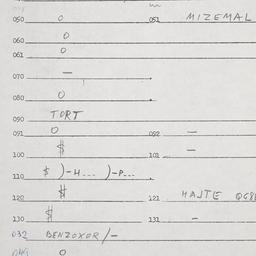 050 O 051 MIZEMAL
060 O
061 O
070 —
080 O
090 TORT
091 O 092 —
100 $ 101 —
110 $ )-H--- )-P---
120 $ 121 HAJTE
130 $ 131 -
032 BENZOXOR/-
O